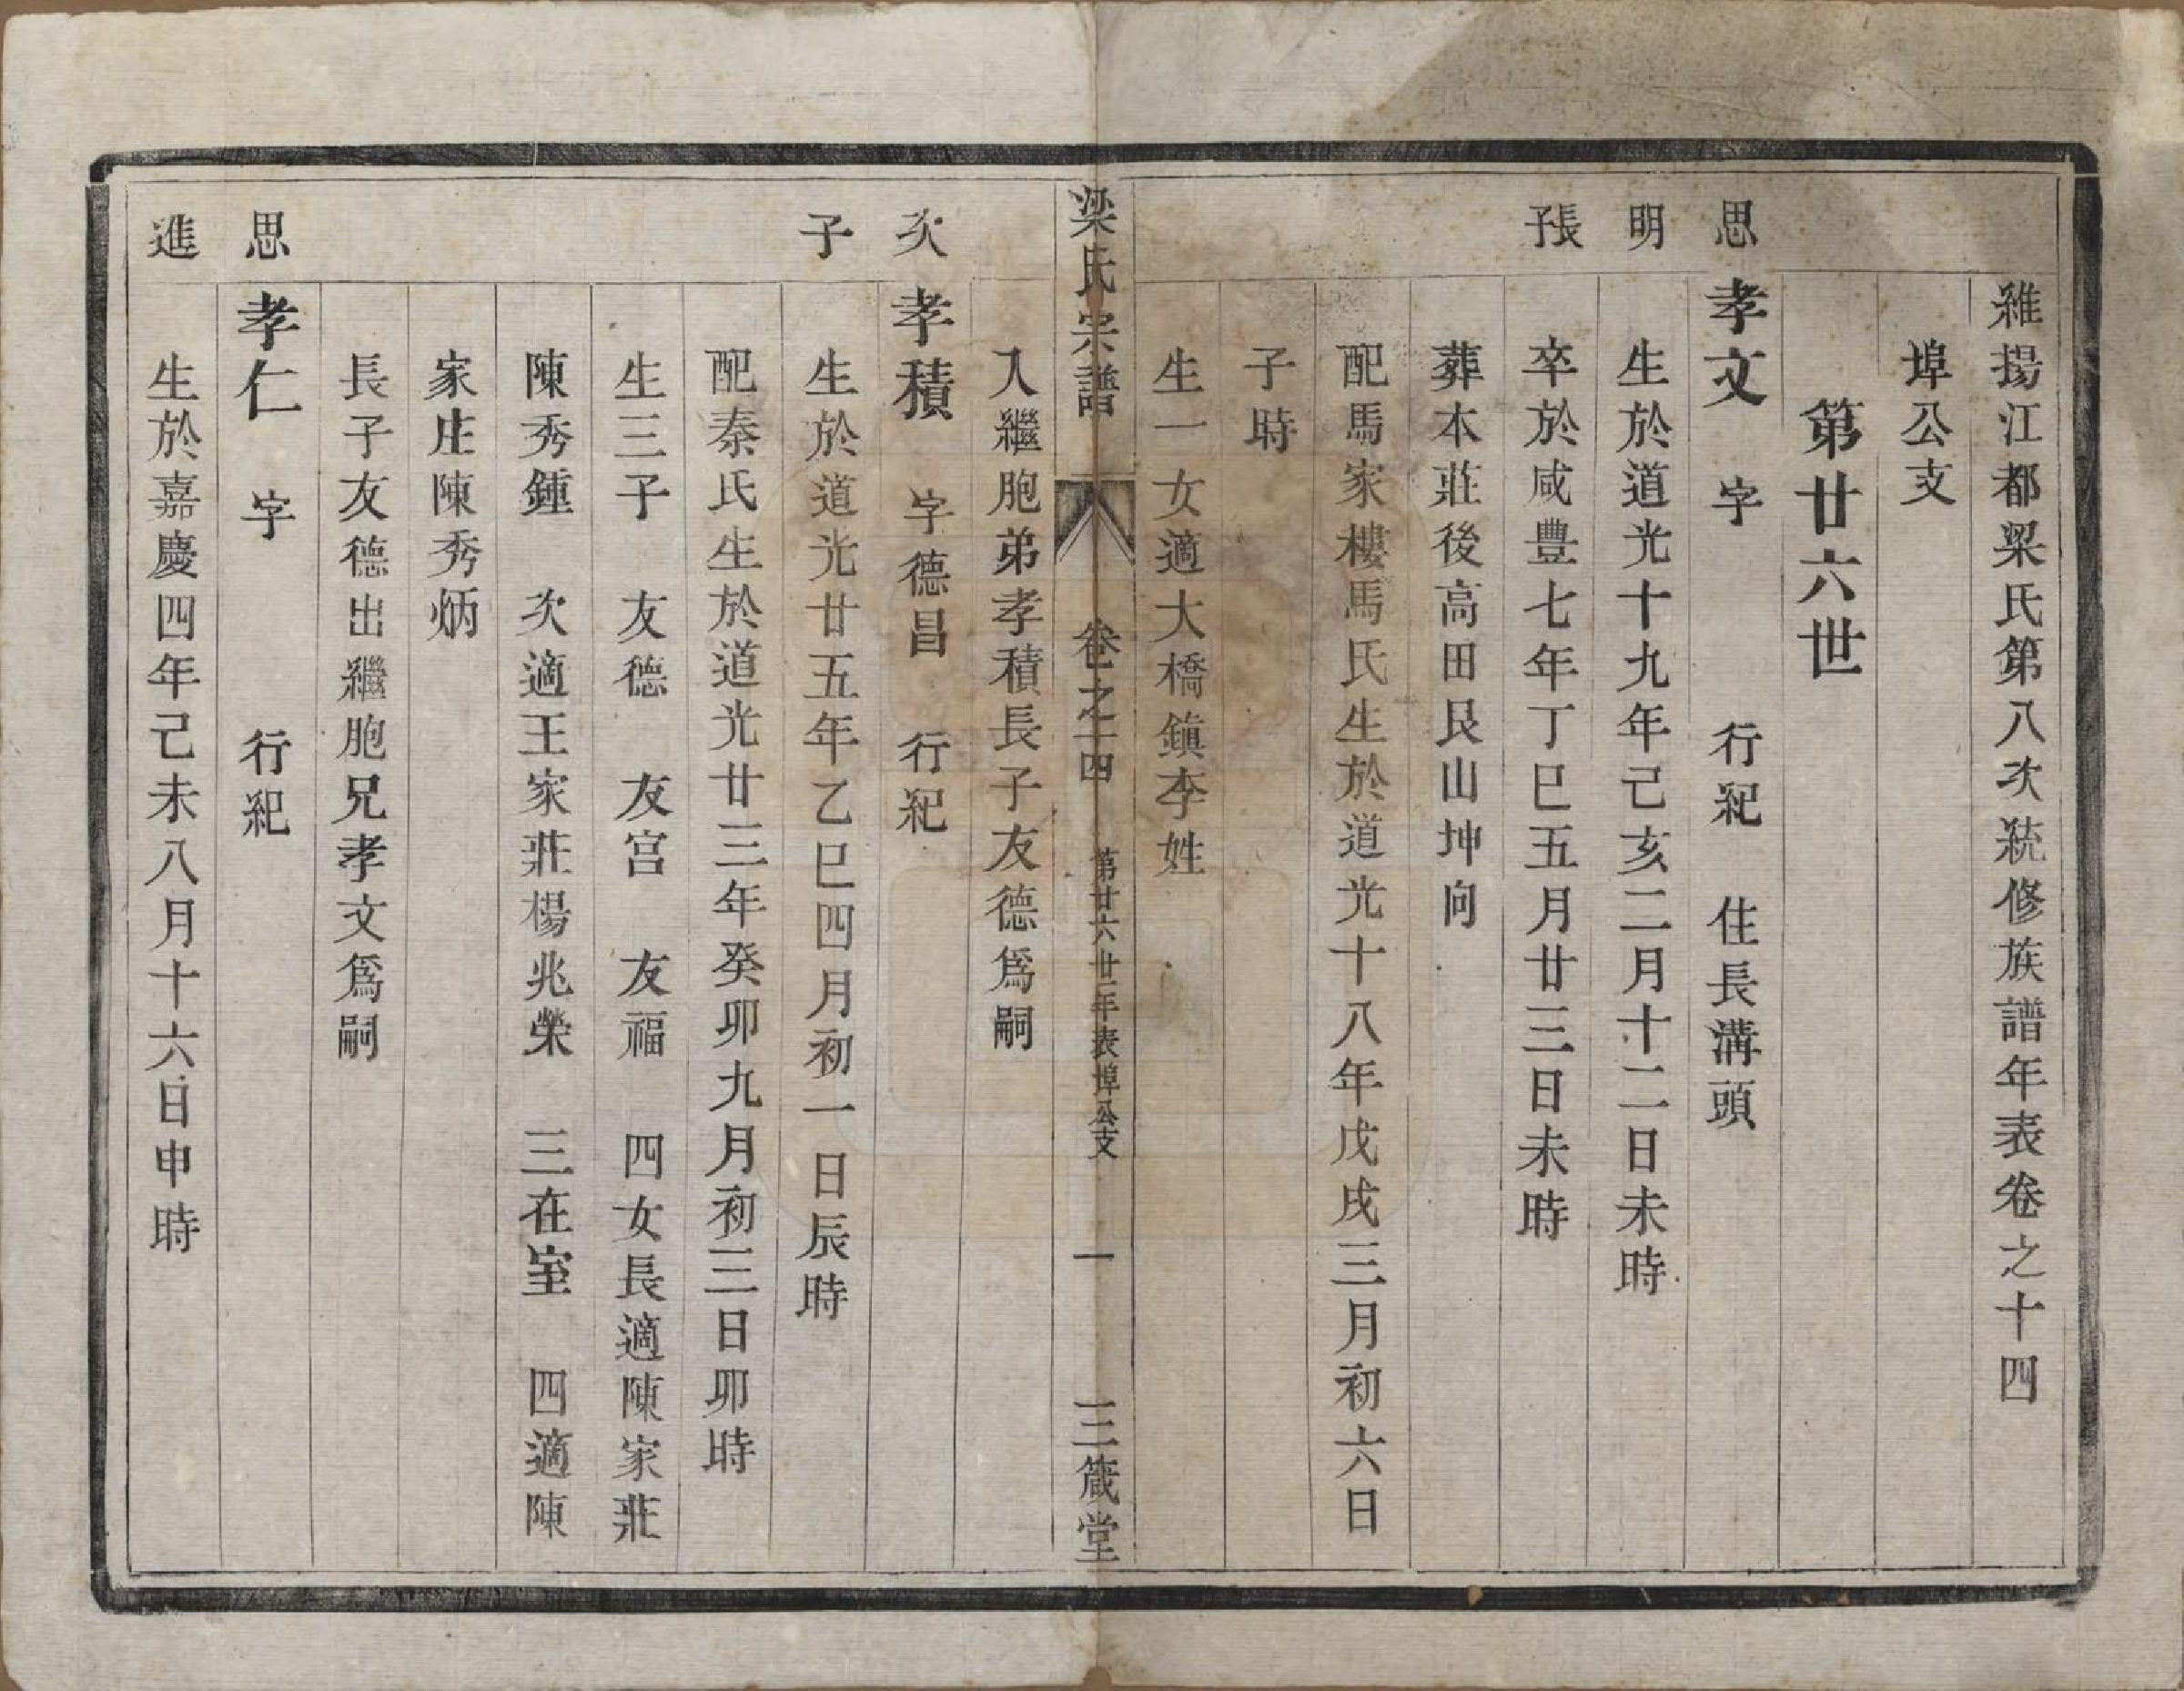 維揚江都梁氏第八次統修族譜年表卷之十四
埠公支
第廿六世
思 孝文 字 行紀 住長溝頭
明 生於道光十九年己亥二月十二日未時
長子 卒於咸豐七年丁巳五月廿三日未時
葬本莊後高田艮山坤向
配馬家樓馬氏生於道光十八年戊戌三月初六日
子時
生一女適大橋鎮李姓
梁氏宗譜 卷之十四 第廿六世年表埠公支 一 三箴堂
入繼胞弟孝積長子友德爲嗣
次 孝積 字德昌 行紀
子 生於道光廿五年乙巳四月初一日辰時
配秦氏生於道光廿三年癸卯九月初三日卯時
生三子 友德 友宫 友福 四女長適陳家莊
陳秀鍾 次適王家莊楊兆榮 三在室 四適陳
家庄陳秀炳
長子友德出繼胞兄孝文爲嗣
思 孝仁 字 行紀
進 生於嘉慶四年己未八月十六日申時